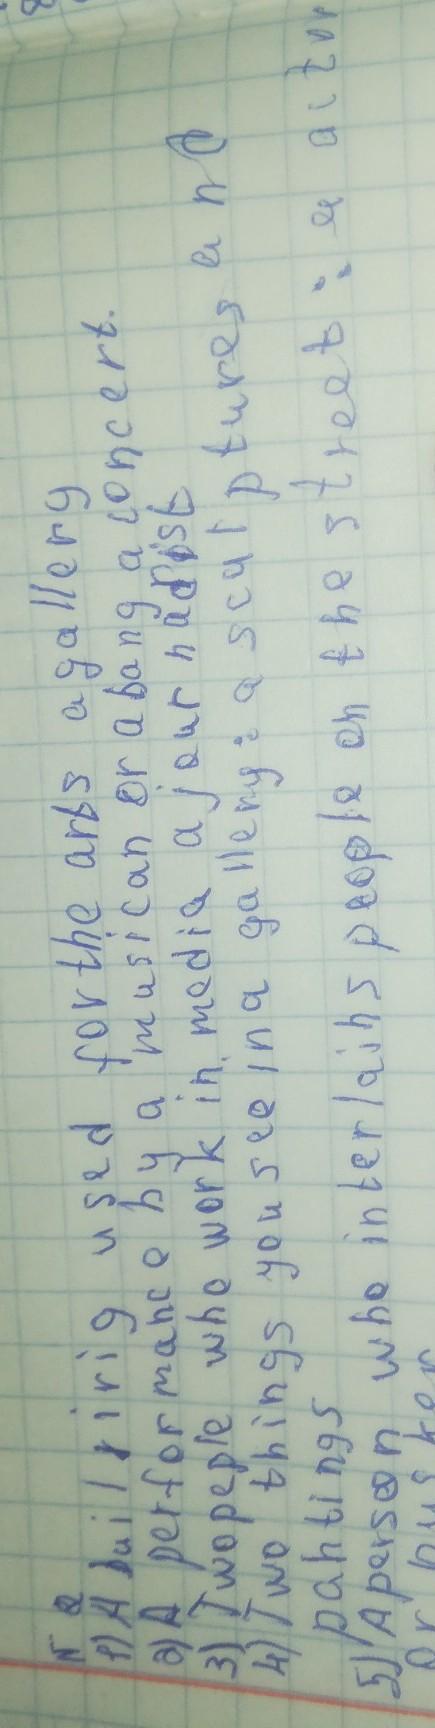 N 2
1) A buil ririg used for the arts a gallery
2) A perfor mance by a musican or a bang a concert.
3) Two peple who work in media a jour nadrist
4) Two things you see in a gallery: a scul ptures and
pahtings
5) A person who interlaihs people on the street: a actor
or busker